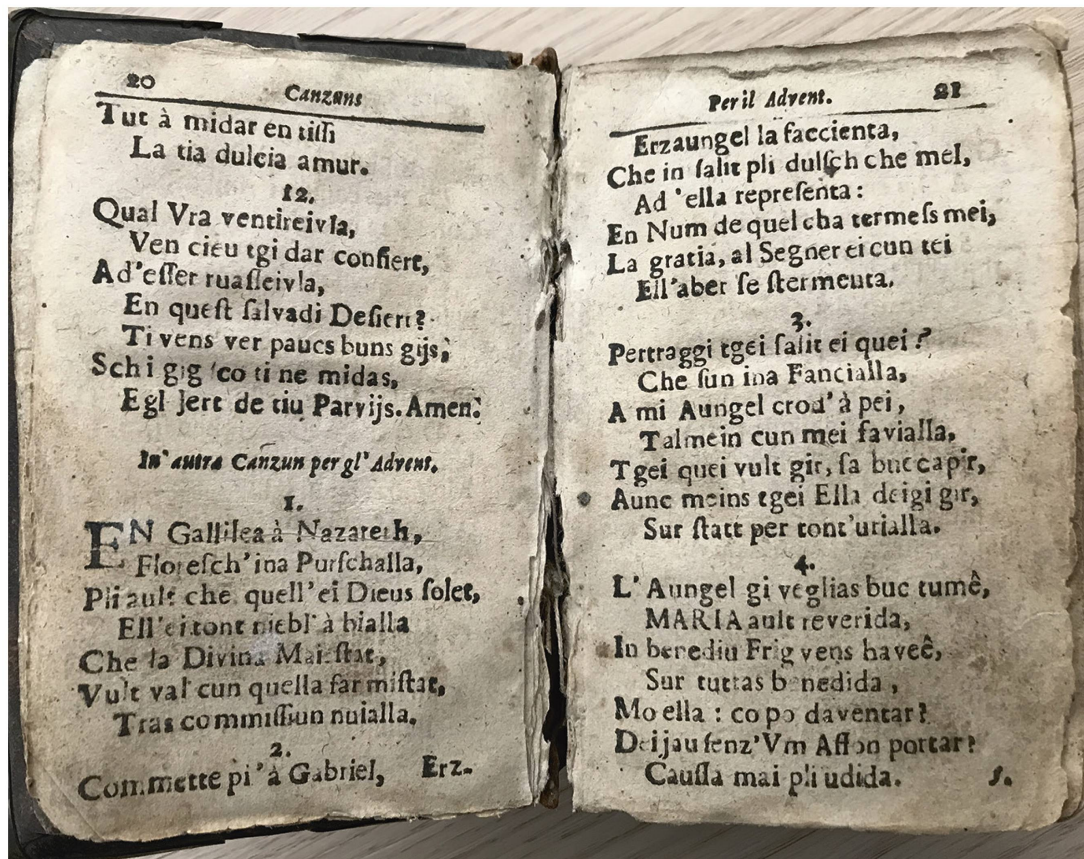 20 Canzuns
Tut à midar en tissi
La tia dulcia amur.
12.
Qual Vra ventireivla,
Ven cieu tgi dar confiert,
Ad'esser ruasseivla,
En quest salvadi Desiert?
Ti vens ver paucs buns gijs,
Schi gig 'co ti ne midas,
Egl Jert de tiu Parvijs. Amen.
In' autra Canzun per gl' Advent.
1.
EN Gallilea à Nazareth,
Floresch' ina Purschalla,
Pli ault che quell' ei Dieus solet,
Ell'ei tont niebl' à bialla
Che la Divina Maiestat,
Vult val cun quella far mistat,
Tras commissiun nuialla.
2.
Commette pi' à Gabriel,
Erz-
Per il Advent. 21
Erzaungel la faccienta,
Che in salit pli dulsch che mel,
Ad 'ella representa:
En Num de quel cha termess mei,
La gratia, al Segner ei cun tei
Ell'aber se stermenta.
3.
Pertraggi tgei salit ei quei?
Che sun ina Fancialla,
A mi Aungel crod' à pei,
Talmein cun mei favialla,
Tgei quei vult gir, sa buc capir,
Aunc meins tgei Ella deigi gir,
Sur statt per tont'urialla.
4.
L' Aungel gi veglias buc tumê,
MARIA ault reverida,
In benediu Frig vens haveê,
Sur tuttas benedida,
Mo ella : co po daventar?
Deijau senz'Vm Affon portar?
Caussa mai pli udida.
5.